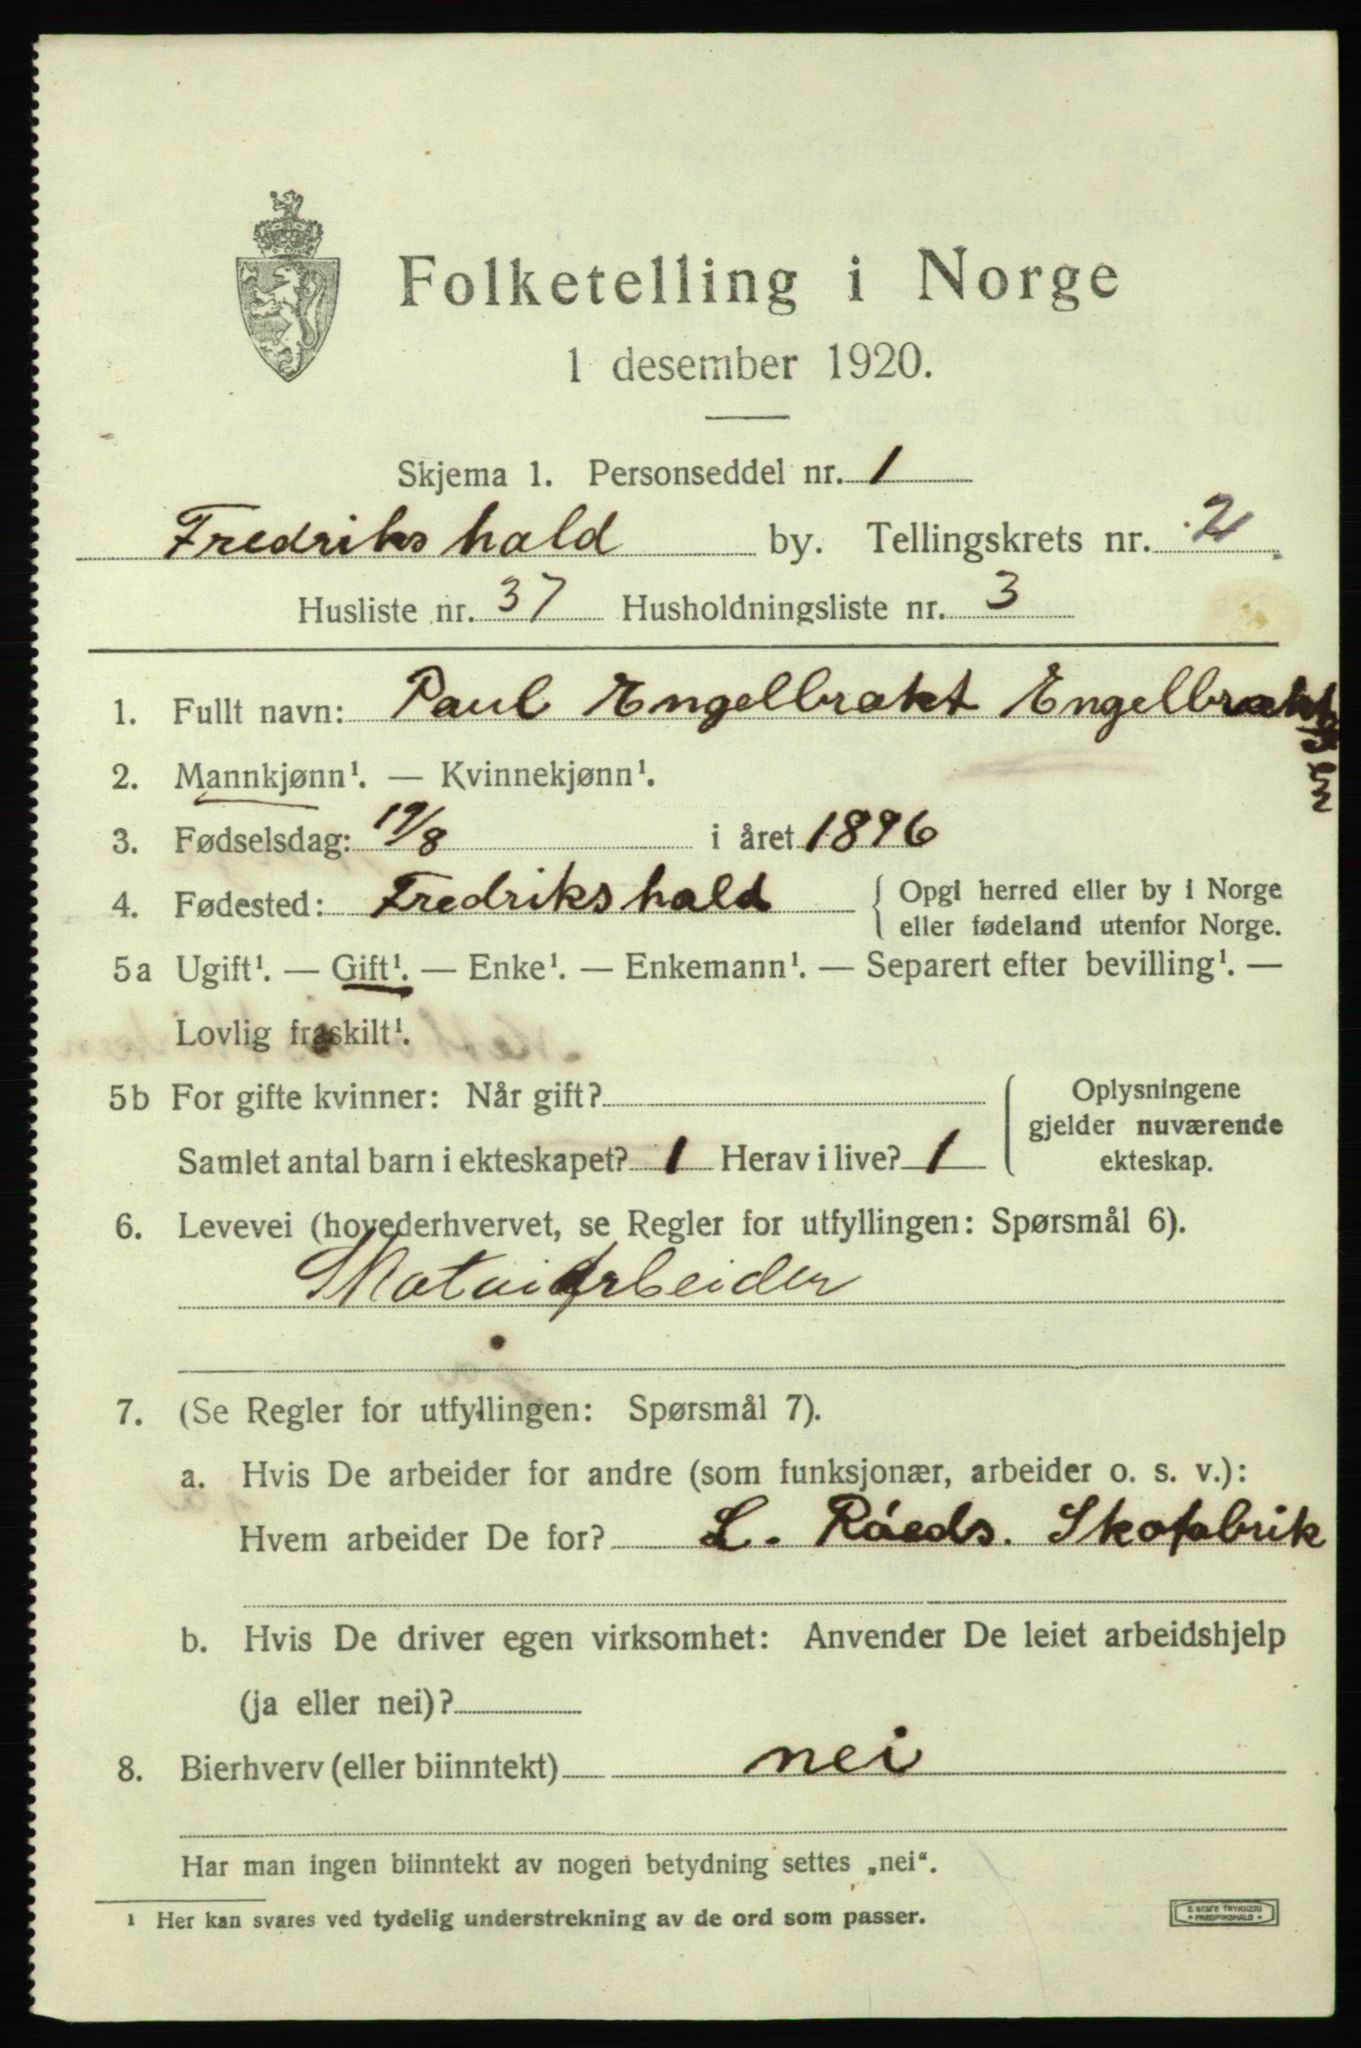 Folketelling i Norge
1 desember 1920.
Skjema 1. Personseddel nr. 1
Fredrikshald by. Tellingskrets nr. 2
Husliste nr. 37 Husholdningsliste nr. 3
1. Fullt navn: Paul Engelbrekt Engelbrekt
sen
2. Mannkjønn¹. — Kvinnekjønn¹.
3. Fødselsdag: 19/8 i året 1896
4. Fødested: Fredrikshald { Opgi herred eller by i Norge
eller fødeland utenfor Norge.
5a Ugift¹. — Gift¹. — Enke¹. — Enkemann¹. — Separert efter bevilling¹. —
Lovlig fraskilt¹.
5b For gifte kvinner: Når gift? { Oplysningene
gjelder nuværende
Samlet antal barn i ekteskapet? 1 Herav i live? 1 ekteskap.
6. Levevei (hovederhvervet, se Regler for utfyllingen: Spørsmål 6).
Skotøiarbeider
7. (Se Regler for utfyllingen: Spørsmål 7).
a. Hvis De arbeider for andre (som funksjonær, arbeider o. s. v.):
Hvem arbeider De for? L. Røeds. Skofabrik
b. Hvis De driver egen virksomhet: Anvender De leiet arbeidshjelp
(ja eller nei)?
8. Bierhverv (eller biinntekt) nei
Har man ingen biinntekt av nogen betydning settes „nei“.
¹ Her kan svares ved tydelig understrekning av de ord som passer.
E SEM'S TRYKKERI
• FREDRIKSHALD •